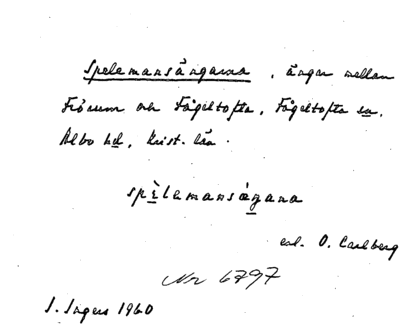 Spelemansängarna, ängar mellan
Frörum och Fågeltofta, Fågeltofta sn,
Albo hd, Krist. län.
spelemansäŋana
enl. O. Carlberg
Nr 6797
I. Ingers 1960